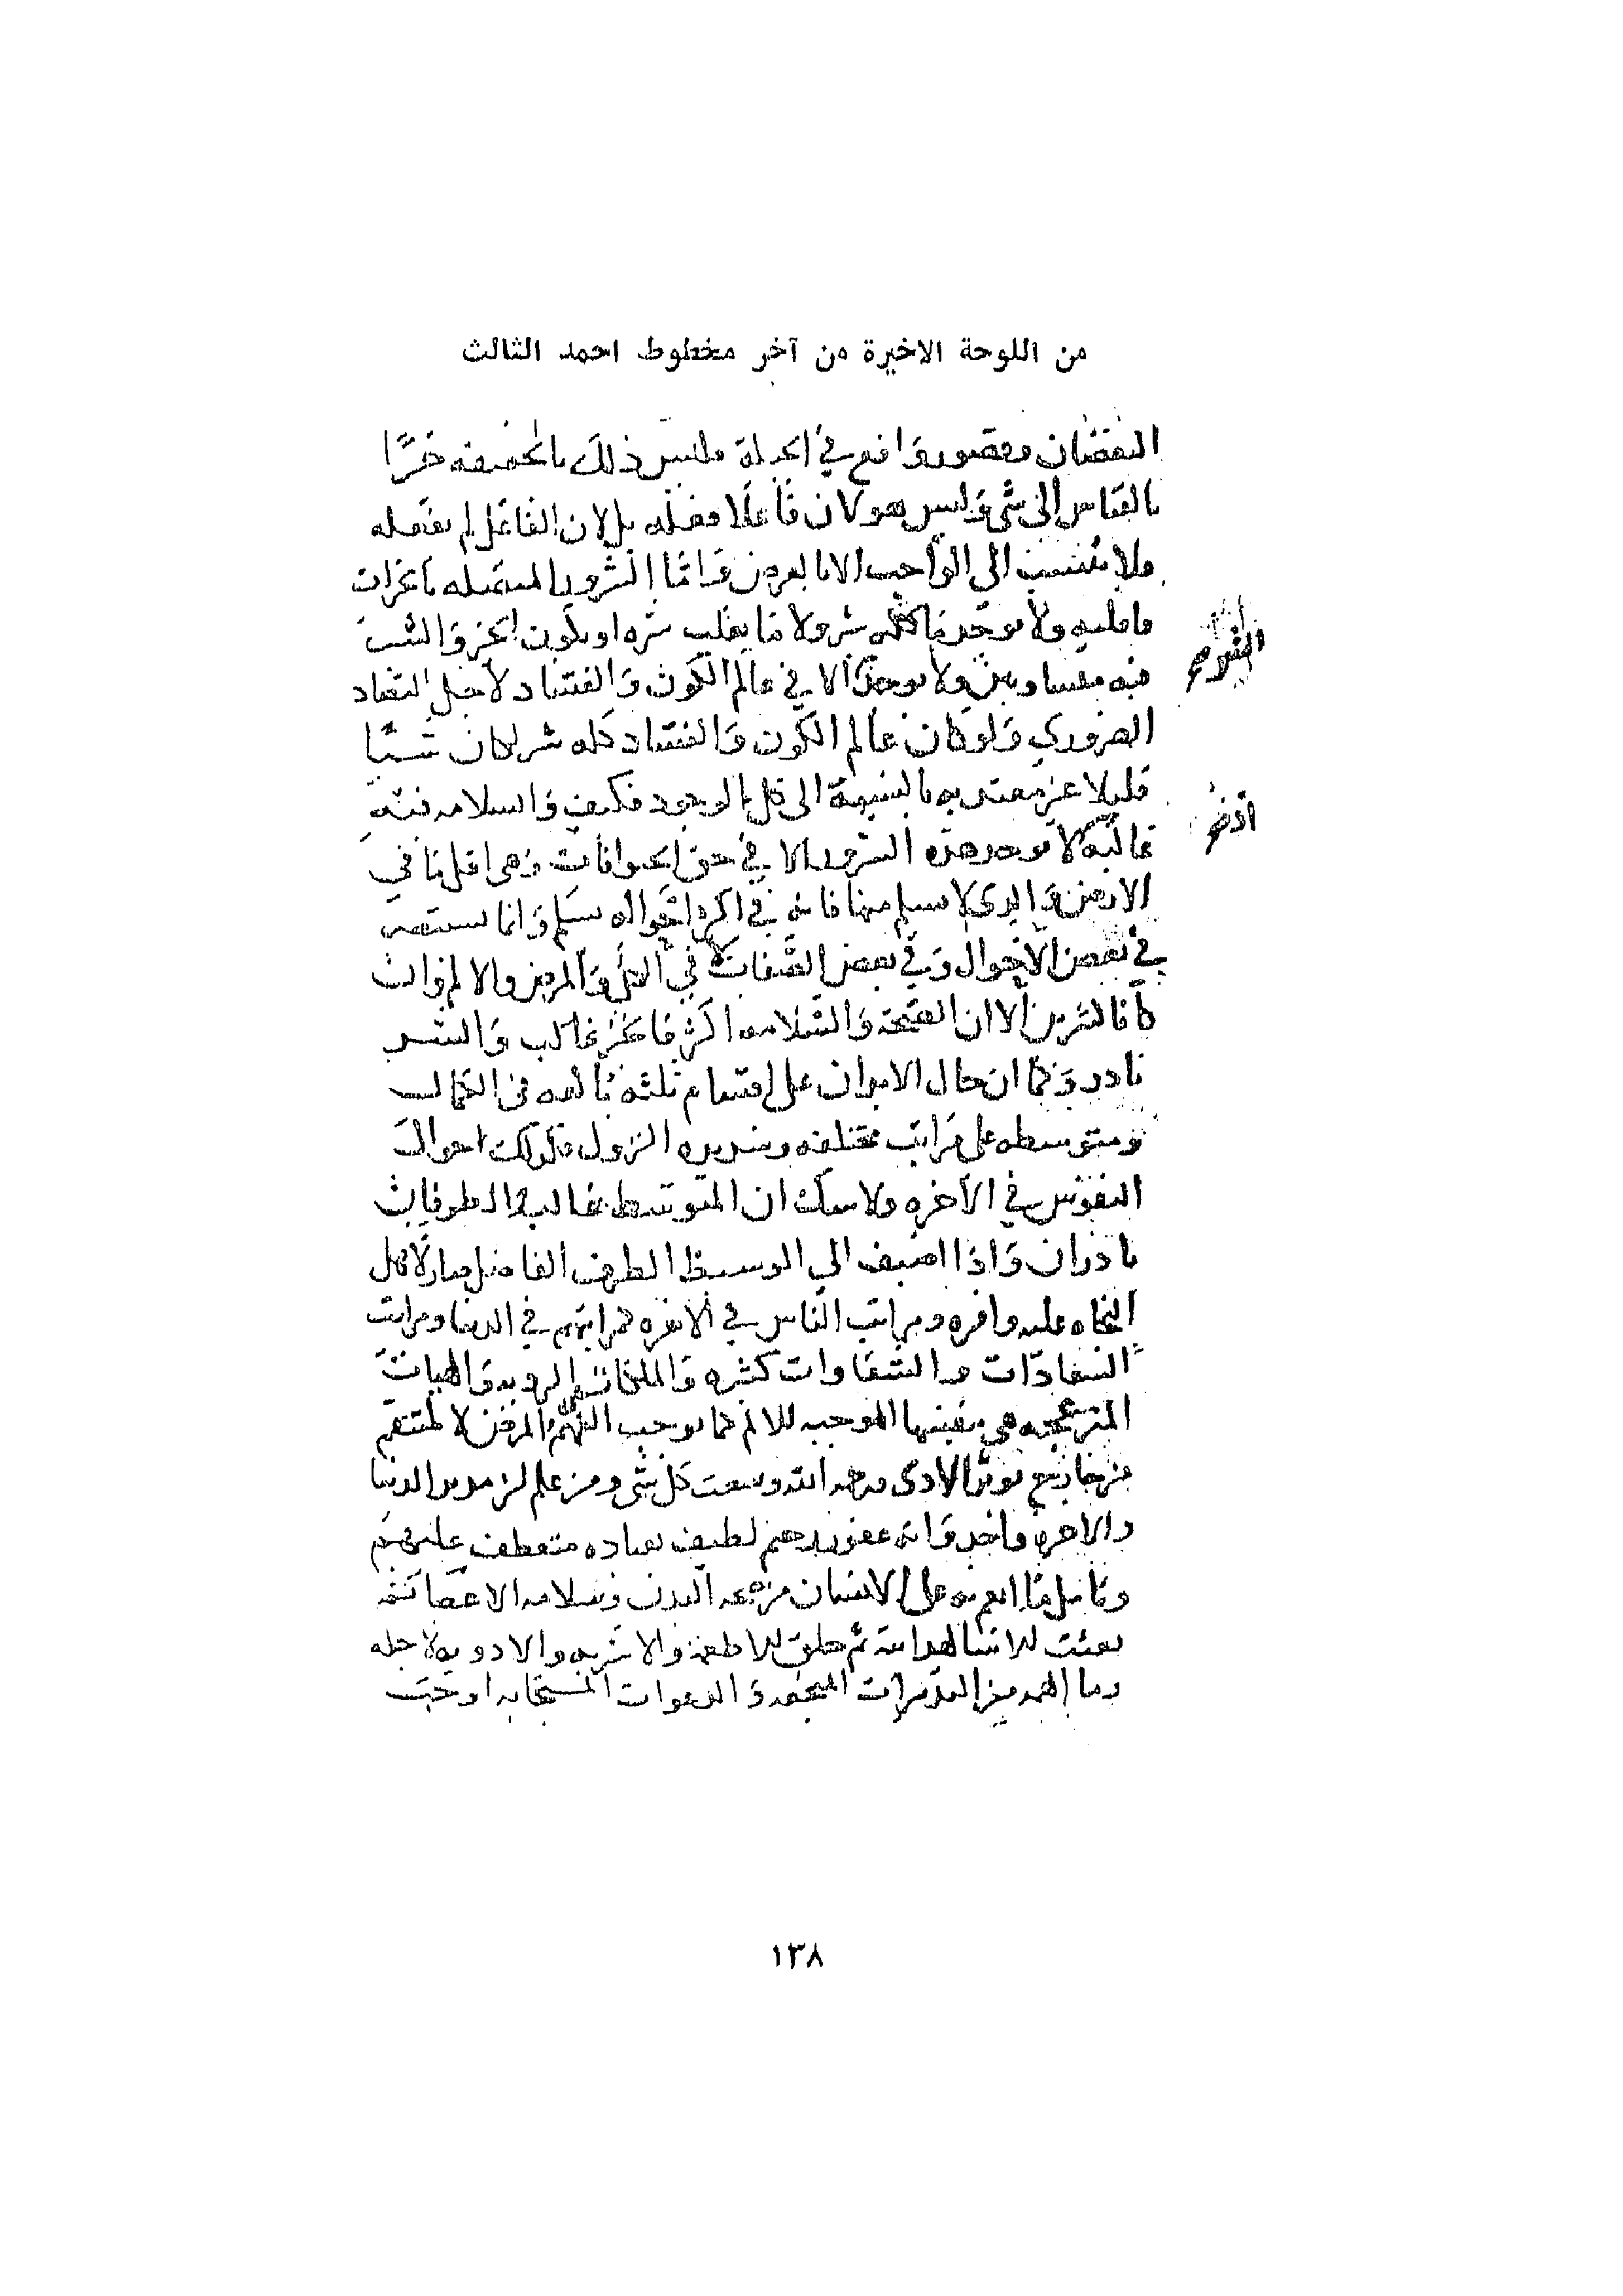 من اللوحة الاخيرة من آخر مخطوط احمد الثالث
النقصان وقصور واقع في الجبلة وليس ذلك بالحقيقة خيرًا
بالقياس الى شي وليس هو لان فاعلا فعله بل لان الفاعل لم يفعله
ولا ينسب الى الواجب الا بالعرض واما الشرور المتصله بالخيرات
فاقليه ولا يوجد ما كله شر ولا ما يغلب شره او يكون الخير والشر
فيه متساويين ولا يوجد الا في عالم الكون والفساد لاجل التضاد
الضروري ولو كان عالم الكون والفساد كله شر لكان شيئا
قليلا غير معتد به بالنسبة الى كل الوجود فكيف والسلامه فيه
غالبة لا توجد هذه الشرور الا في حق الحيوانات وهي اقل ما في
الارض والذي لا يسلم منها فانه في اكثر احواله يسلم وانما يستضر
في بعض الاحوال وفي بعض الصفات لا في الكل والمرض والالم وان
كانا كثيرين الا ان الصحة والسلامه اكثر فالخير غالب والشر
نادر وكما ان حال الابدان على اقسام ثلثه بالغه في الكمال
ومتوسطه على مراتب مختلفه وشديده النزول فكذلك احوال
النفوس في الآخره ولا شك ان المتوسط غالب والطرفان
نادران واذا اضيف الى الوسط الطرف الفاضل صار لاهل
النجاه غلبه وافره ومراتب الناس في الاخره كمراتبهم في الدنيا ومراتب
السعادات والشقاوات كثيره والملكات الرديه والهيات
المنزعجه هي بنفسها الموجبه للالم كما يوجب النهم المرض لا لمنتقم
من خارج يوثر الاذى ورحمه الله وسعت كل شي ومن علم ان مدبر الدنيا
والاخره واحد وانه غفور رحيم لطيف بعباده متعطف عليهم
وتامل ما انعم به على الانسان من صحه البدن وسلامه الاعضا ثم
بعثت الانبيا لهدايته ثم خلق الاطعمة والاشربه والادوية لاجله
وما الهمه من التدبيرات والدعوات المستجابه اوجب
الشرور
١٣٨